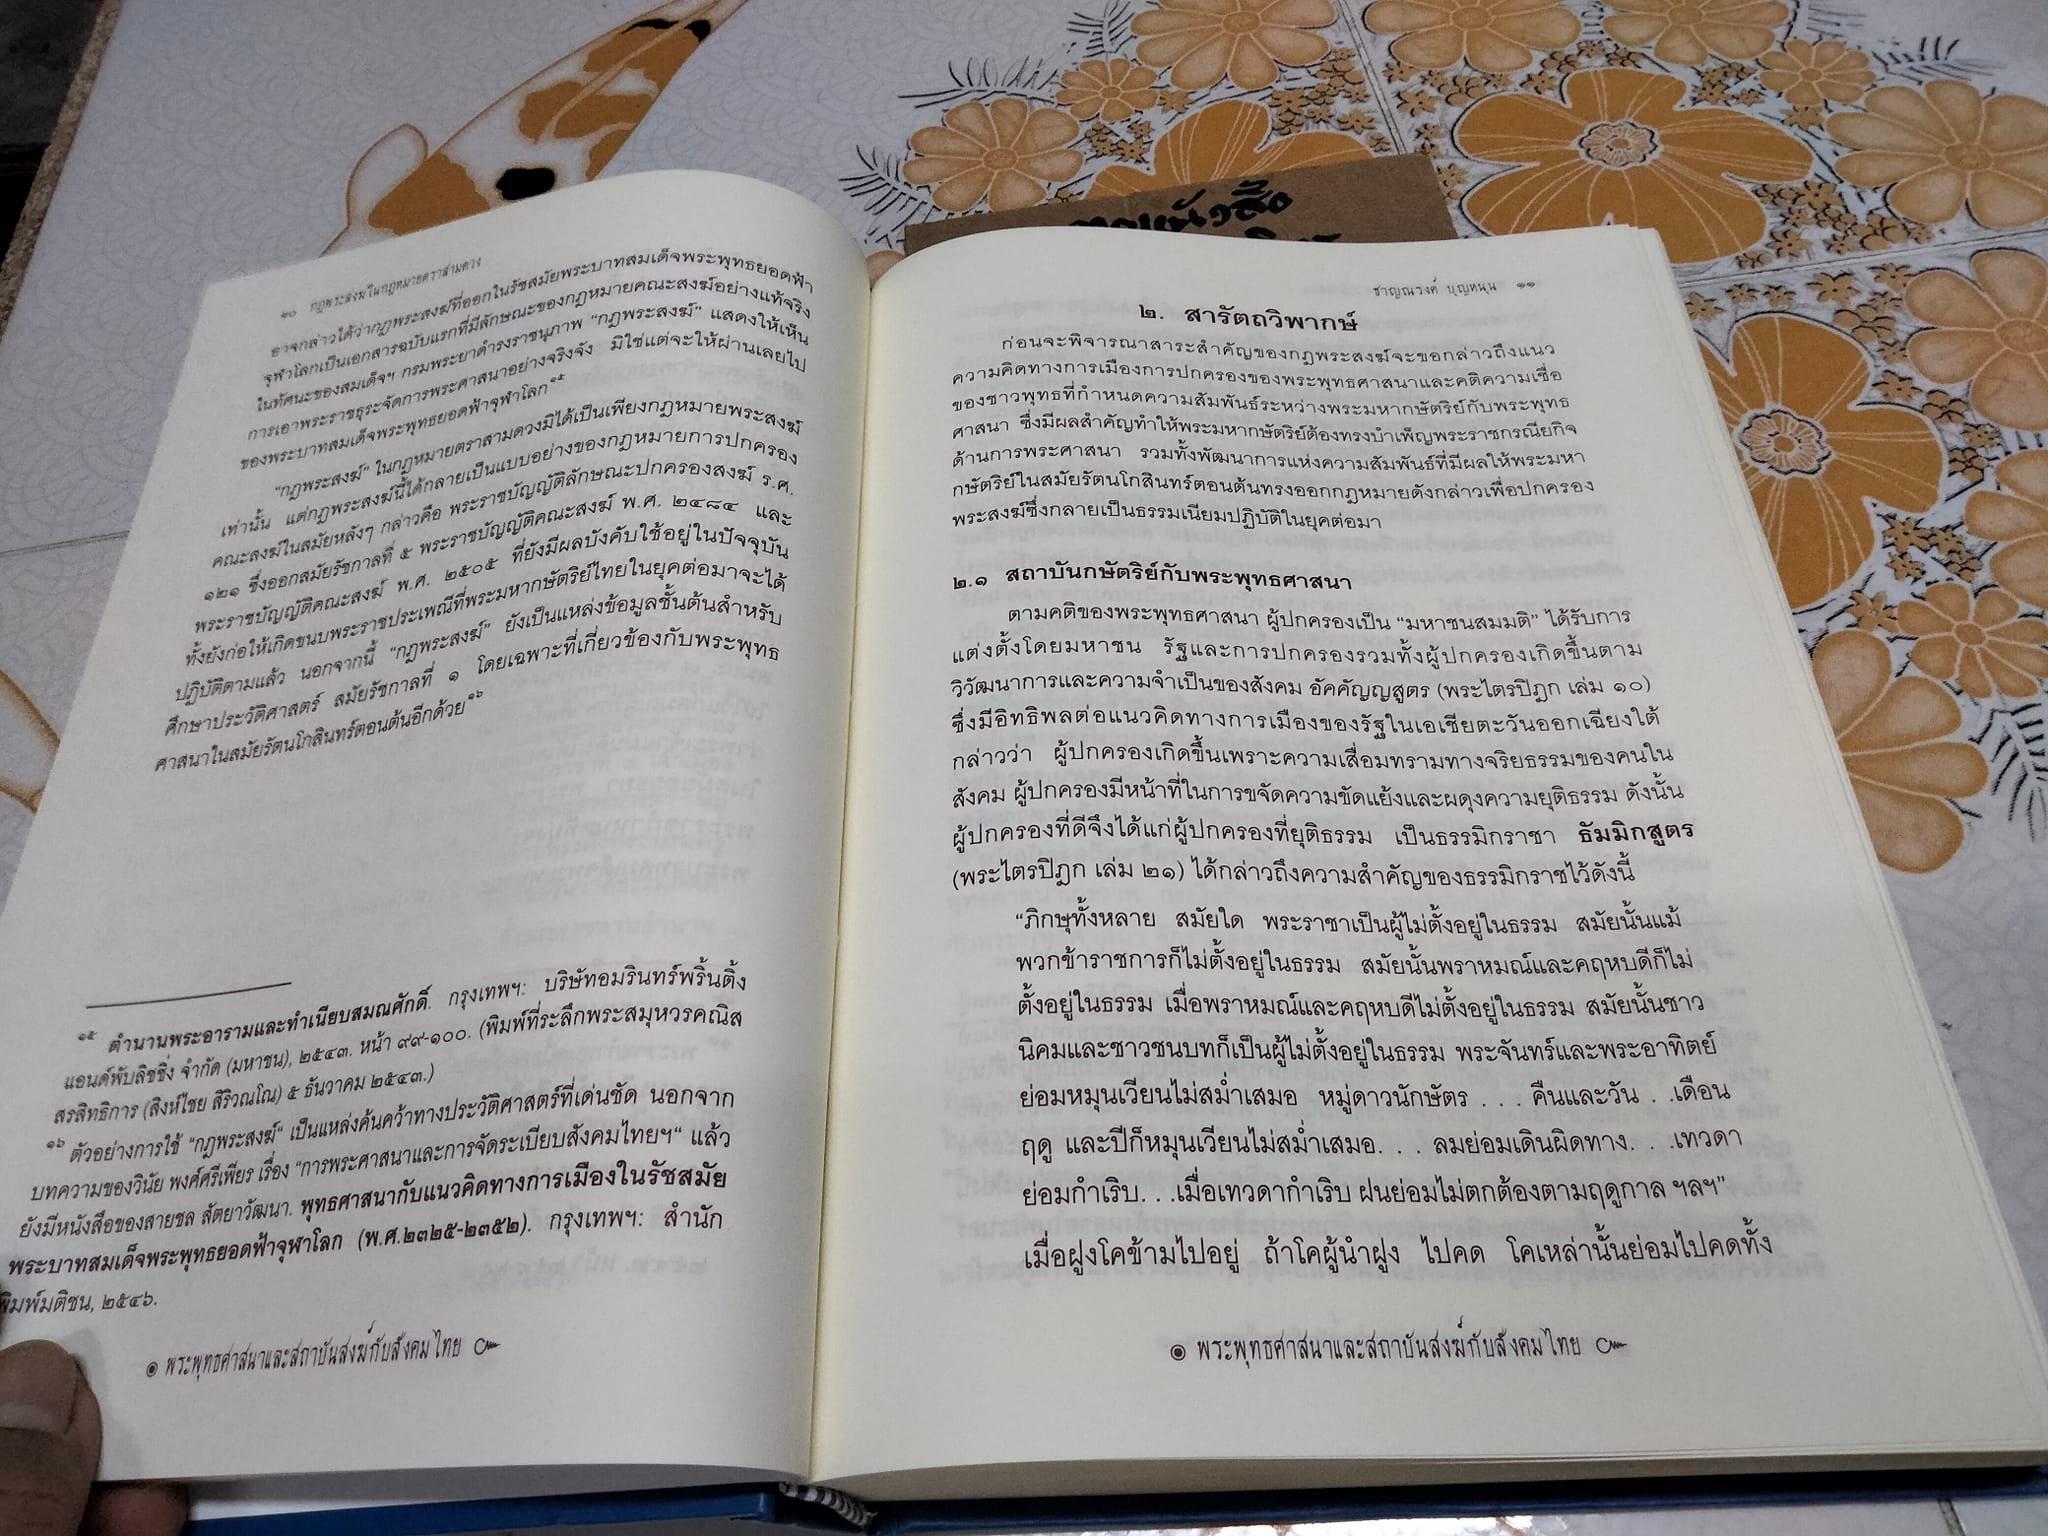 ๒๐ กฎพระสงฆ์ในกฎหมายตราสามดวง
อาจกล่าวได้ว่ากฎพระสงฆ์ที่ออกในรัชสมัยพระบาทสมเด็จพระพุทธยอดฟ้า
จุฬาโลกเป็นเอกสารฉบับแรกที่มีลักษณะของกฎหมายคณะสงฆ์อย่างแท้จริง
ในทัศนะของสมเด็จฯ กรมพระยาดำรงราชานุภาพ “กฎพระสงฆ์” แสดงให้เห็น
การเอาพระราชธุระจัดการพระศาสนาอย่างจริงจัง มิใช่แต่จะให้ผ่านเลยไป
ของพระบาทสมเด็จพระพุทธยอดฟ้าจุฬาโลก๑๕
“กฎพระสงฆ์” ในกฎหมายตราสามดวงมิได้เป็นเพียงกฎหมายพระสงฆ์
เท่านั้น แต่กฎพระสงฆ์นี้ได้กลายเป็นแบบอย่างของกฎหมายการปกครอง
คณะสงฆ์ในสมัยหลังๆ กล่าวคือ พระราชบัญญัติลักษณะปกครองสงฆ์ ร.ศ.
๑๒๑ ซึ่งออกสมัยรัชกาลที่ ๕ พระราชบัญญัติคณะสงฆ์ พ.ศ. ๒๔๘๔ และ
พระราชบัญญัติคณะสงฆ์ พ.ศ. ๒๕๐๕ ที่ยังมีผลบังคับใช้อยู่ในปัจจุบัน
ทั้งยังก่อให้เกิดขนบพระราชประเพณีที่พระมหากษัตริย์ไทยในยุคต่อมาจะได้
ปฏิบัติตามแล้ว นอกจากนี้ “กฎพระสงฆ์” ยังเป็นแหล่งข้อมูลชั้นต้นสำหรับ
ศึกษาประวัติศาสตร์ สมัยรัชกาลที่ ๑ โดยเฉพาะที่เกี่ยวข้องกับพระพุทธ
ศาสนาในสมัยรัตนโกสินทร์ตอนต้นอีกด้วย๑๖
๑๕ ตำนานพระอารามและทำเนียบสมณศักดิ์. กรุงเทพฯ: บริษัทอมรินทร์พริ้นติ้ง
แอนด์พับลิชชิ่ง จำกัด (มหาชน), ๒๕๔๓. หน้า ๙๙-๑๐๐. (พิมพ์ที่ระลึกพระสมุหวรคณิส
สรสิทธิการ (สิงห์ไชย สิริวณโณ) ๕ ธันวาคม ๒๕๔๓.)
๑๖ ตัวอย่างการใช้ “กฎพระสงฆ์” เป็นแหล่งค้นคว้าทางประวัติศาสตร์ที่เด่นชัด นอกจาก
บทความของวินัย พงศ์ศรีเพียร เรื่อง “การพระศาสนาและการจัดระเบียบสังคมไทยฯ” แล้ว
ยังมีหนังสือของสายชล สัตยาวัฒนา. พุทธศาสนากับแนวคิดทางการเมืองในรัชสมัย
พระบาทสมเด็จพระพุทธยอดฟ้าจุฬาโลก (พ.ศ.๒๓๒๕-๒๓๕๒). กรุงเทพฯ: สำนัก
พิมพ์มติชน, ๒๕๔๖.
พระพุทธศาสนาและสถาบันสงฆ์กับสังคมไทย
ชาญณรงค์ บุญหนุน ๑๑
๒. สารัตถวิพากษ์
ก่อนจะพิจารณาสาระสำคัญของกฎพระสงฆ์จะขอกล่าวถึงแนว
ความคิดทางการเมืองการปกครองของพระพุทธศาสนาและคติความเชื่อ
ของชาวพุทธที่กำหนดความสัมพันธ์ระหว่างพระมหากษัตริย์กับพระพุทธ
ศาสนา ซึ่งมีผลสำคัญทำให้พระมหากษัตริย์ต้องทรงบำเพ็ญพระราชกรณียกิจ
ด้านการพระศาสนา รวมทั้งพัฒนาการแห่งความสัมพันธ์ที่มีผลให้พระมหา
กษัตริย์ในสมัยรัตนโกสินทร์ตอนต้นทรงออกกฎหมายดังกล่าวเพื่อปกครอง
พระสงฆ์ซึ่งกลายเป็นธรรมเนียมปฏิบัติในยุคต่อมา
๒.๑ สถาบันกษัตริย์กับพระพุทธศาสนา
ตามคติของพระพุทธศาสนา ผู้ปกครองเป็น “มหาชนสมมติ” ได้รับการ
แต่งตั้งโดยมหาชน รัฐและการปกครองรวมทั้งผู้ปกครองเกิดขึ้นตาม
วิวัฒนาการและความจำเป็นของสังคม อัคคัญญสูตร (พระไตรปิฎก เล่ม ๑๐)
ซึ่งมีอิทธิพลต่อแนวคิดทางการเมืองของรัฐในเอเชียตะวันออกเฉียงใต้
กล่าวว่า ผู้ปกครองเกิดขึ้นเพราะความเสื่อมทรามทางจริยธรรมของคนใน
สังคม ผู้ปกครองมีหน้าที่ในการขจัดความขัดแย้งและผดุงความยุติธรรม ดังนั้น
ผู้ปกครองที่ดีจึงได้แก่ผู้ปกครองที่ยุติธรรม เป็นธรรมิกราชา ธัมมิกสูตร
(พระไตรปิฎก เล่ม ๒๑) ได้กล่าวถึงความสำคัญของธรรมิกราชไว้ดังนี้
“ภิกษุทั้งหลาย สมัยใด พระราชาเป็นผู้ไม่ตั้งอยู่ในธรรม สมัยนั้นแม้
พวกข้าราชการก็ไม่ตั้งอยู่ในธรรม สมัยนั้นพราหมณ์และคฤหบดีก็ไม่
ตั้งอยู่ในธรรม เมื่อพราหมณ์และคฤหบดีไม่ตั้งอยู่ในธรรม สมัยนั้นชาว
นิคมและชาวชนบทก็เป็นผู้ไม่ตั้งอยู่ในธรรม พระจันทร์และพระอาทิตย์
ย่อมหมุนเวียนไม่สม่ำเสมอ หมู่ดาวนักษัตร . . . คืนและวัน . . .เดือน
ฤดู และปีก็หมุนเวียนไม่สม่ำเสมอ. . . ลมย่อมเดินผิดทาง. . .เทวดา
ย่อมกำเริบ. . .เมื่อเทวดากำเริบ ฝนย่อมไม่ตกต้องตามฤดูกาล ฯลฯ”
เมื่อฝูงโคข้ามไปอยู่ ถ้าโคผู้นำฝูง ไปคด โคเหล่านั้นย่อมไปคดทั้ง
พระพุทธศาสนาและสถาบันสงฆ์กับสังคมไทย